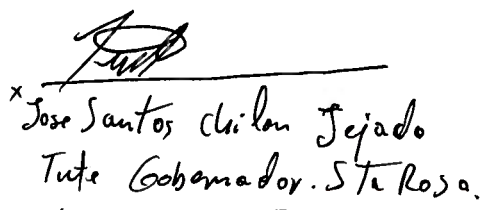 x
Jose Santos Chilon Tejado
Tnte Gobernador. Sta Rosa.